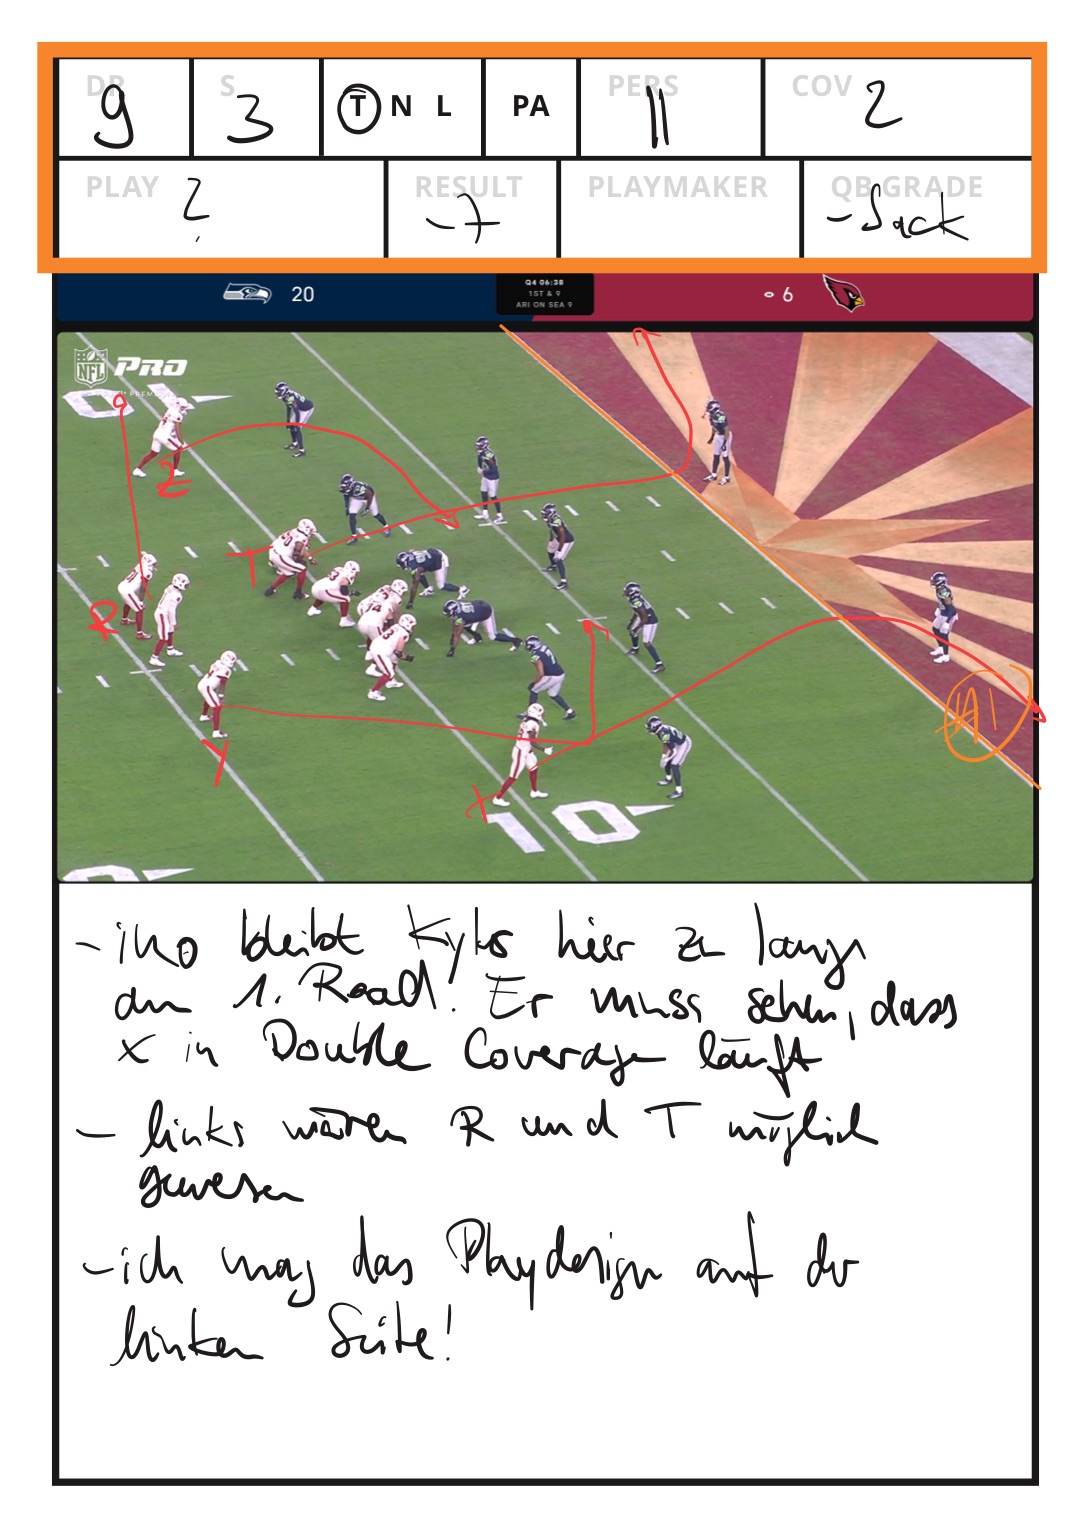 DR 9
S 3
T N L
PA
PERS 11
COV 2
PLAY ?
RESULT -7
PLAYMAKER
QB GRADE - Sack
20
Q4 06:38
1ST & 9
ARI ON SEA 9
6
NFL PRO
Z
T
R
Y
X
#1
1 0
- imo bleibt Kyler hier zu lange
am 1. Read! Er muss sehen, dass
X in Double Coverage läuft
- links wären R und T möglich
gewesen
- ich mag das Playdesign auf der
linken Seite!